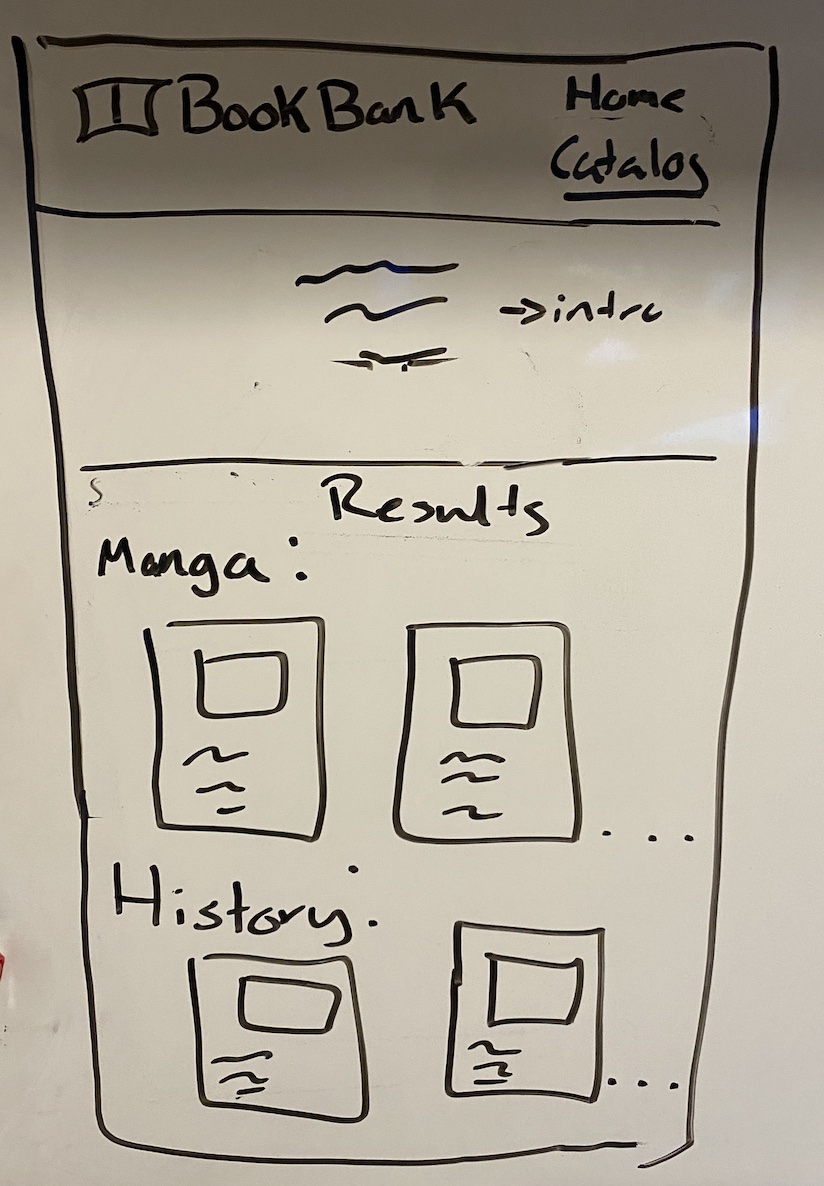 BookBank
Home
Catalog
→intro
Results
Manga:
History: